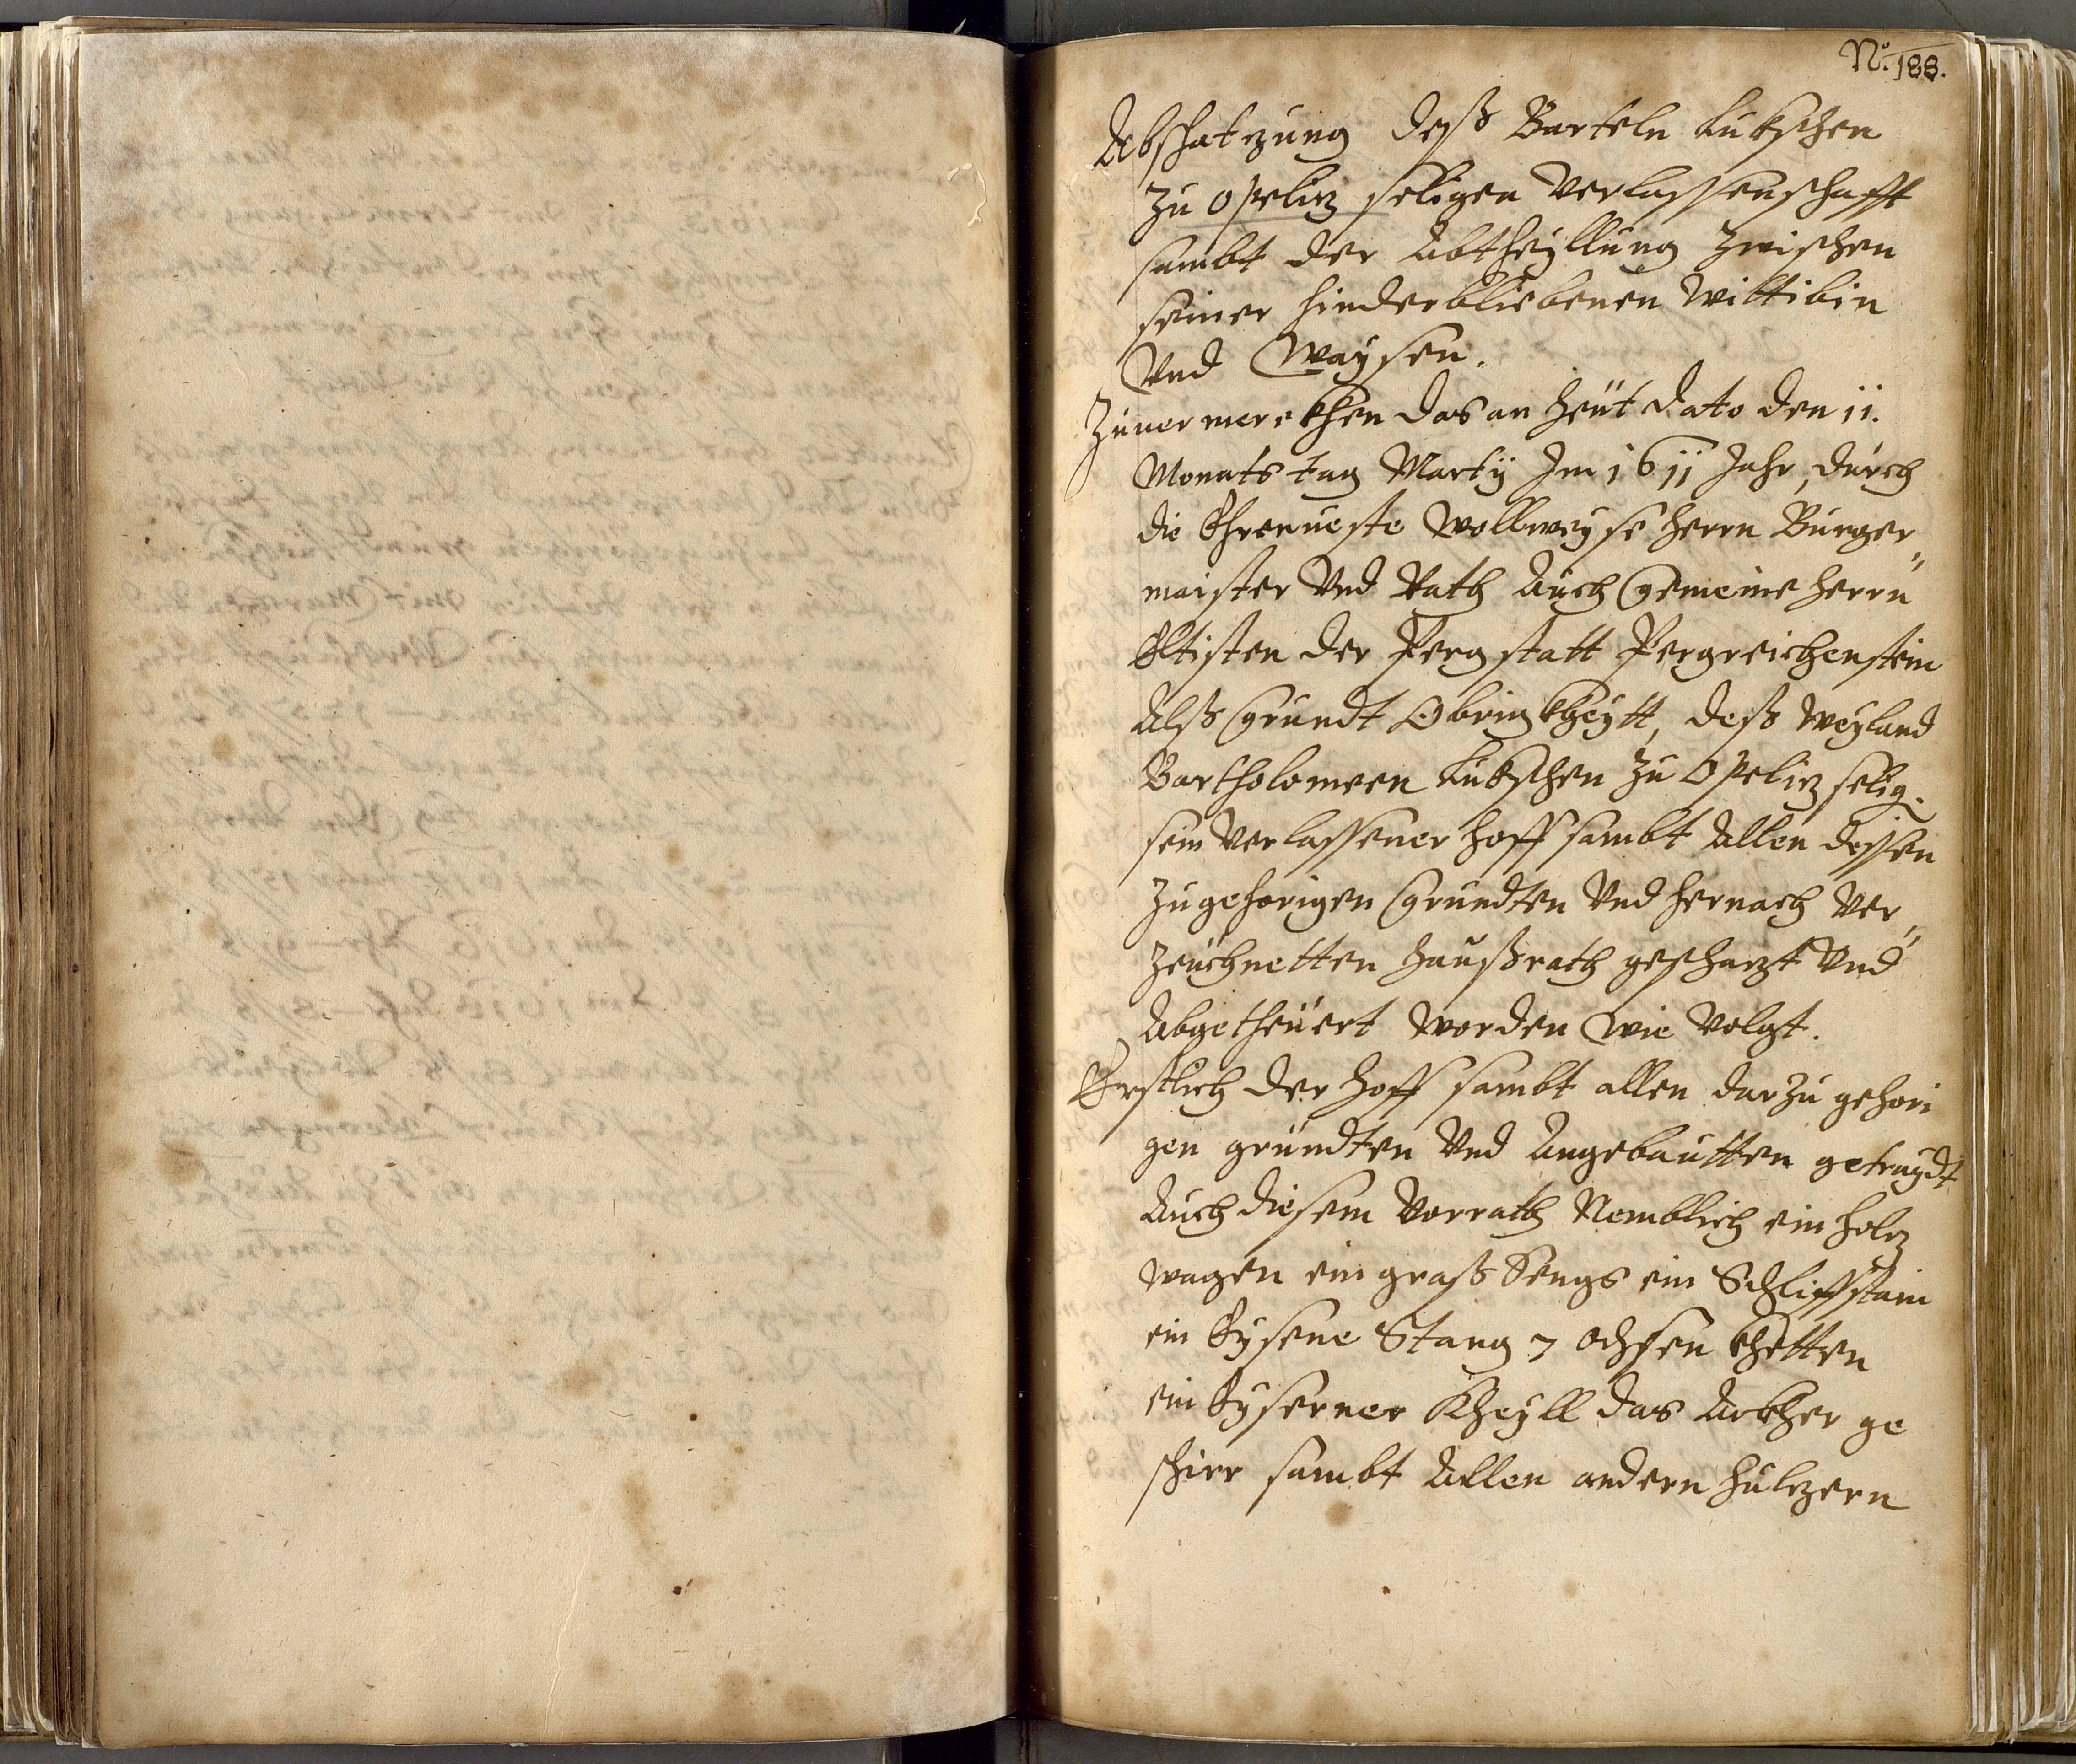 No. 188.
Abschatzung deß Barteln Lukschen
Zu Opeliz seligen Verlassenschafft
sambt der Abtheyllung zwischen
seiner hinderbliebenen Wittibin
Vnd Waysen.
Zuuermerckhen das an heut dato den 11.
Monats tag Martÿ Im 1611 Jahr, durch
die Ehrnueste Wollweyse herrn Burger„
maister Vnd Rath Auch Gemeine herrn
Eltisten der Perg statt Pergreichenstein
Alß Grundt Obrigkheytt, deß weyland
Bartholomeen Lukschen zu Opeliz selig.
sein Verlassener hoff sambt Allen dessen
Zugehorigen Grundten Vnd hernach Ver„
zeuchnetten haußrath geschazt Vnd
Abgetheuert worden wie Volgt.
Erstlich der hoff sambt allen darzu gehori
gen gründten Vnd Angebautten getraydt
Auch diesem Vorrath Nemblich ein holz
wagen ein graß Sengs ein Schliffstain
ein Eysene Stang 7 ochsen khetten
ein Eyserner Kheyll das Ackher ge
schirr sambt Allen andern hulzern